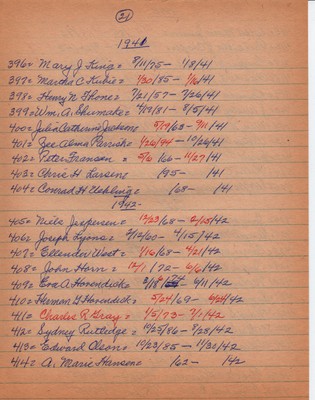 21
1941
396= Mary J. King= 8/11/75- 1/8/41
397= Martha C. Kubie= 1/30/85- 1/16/41
398= Henry N. Ghone= 7/21/57- 7/26/41
399= Wm. A. Shumake= 4/19/81- 8/5/41
400= Julia Catherine Jackson= 5/19/63- 9/11/41
401= Zee Alma Parrish= 1/26/94- 10/26/41
402= Peter Franson = 5/6/66- 4/27/41
403= Chris H Larsen= /95- /41
404= Conrad H Uehling= /68- /41
1942-
405= Niels Jespersen= 12/23/68- 2/15/42
406= Joseph Lyons= 3/12/60- 4/15/42
407= Elleander West= 1/16/68- 4/21/42
408= John Horn = 12/1/72- 6/6/42
409= Eva A. Havendick= 3/18/74- 6/11/42
410= Herman G. Havendick= 5/24/69- 6/24/42
411= Charles R. Gray= 1/5/73- 7/1/42
412= Sydney Rutledge= 10/25/86- 8/28/42
413= Edward Olson= 10/23/85- 11/30/42
414= A. Marie Hanson= /62- /42